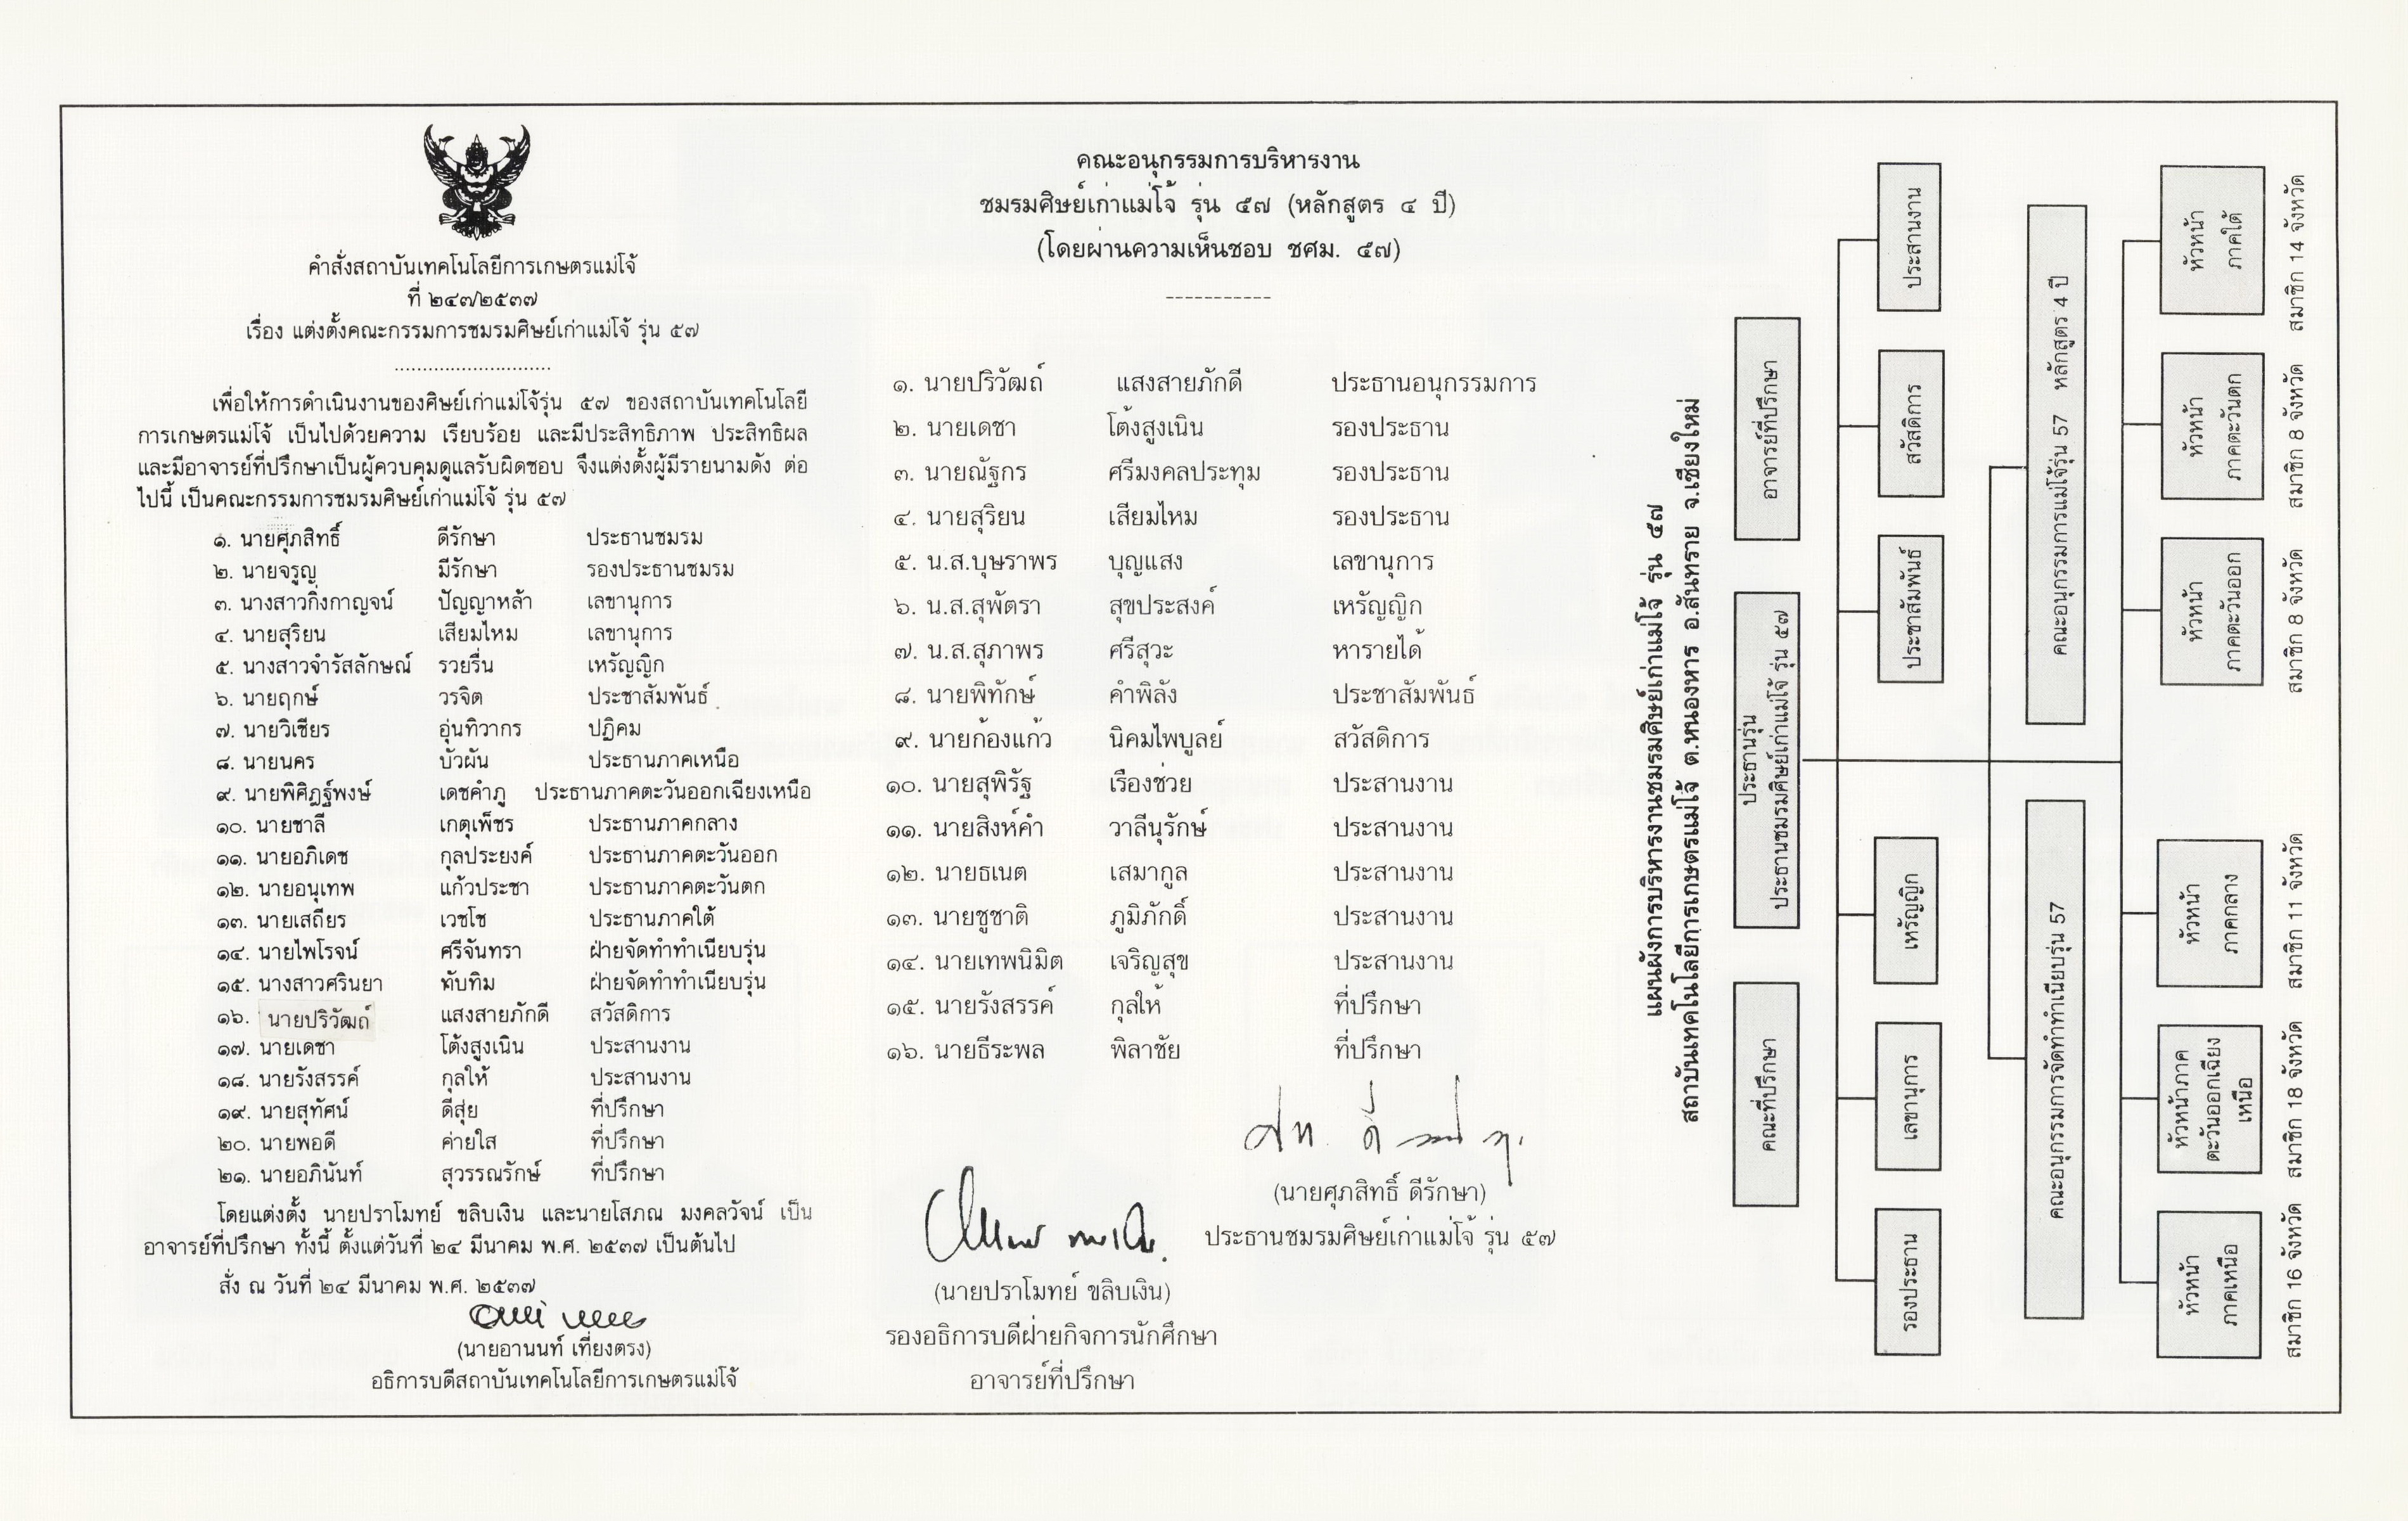 คำสั่งสถาบันเทคโนโลยีการเกษตรแม่โจ้
ที่ ๒๔๗/๒๕๓๗
เรื่อง แต่งตั้งคณะกรรมการชมรมศิษย์เก่าแม่โจ้ รุ่น ๕๗
............................
เพื่อให้การดำเนินงานของศิษย์เก่าแม่โจ้รุ่น ๕๗ ของสถาบันเทคโนโลยี
การเกษตรแม่โจ้ เป็นไปด้วยความ เรียบร้อย และมีประสิทธิภาพ ประสิทธิผล
และมีอาจารย์ที่ปรึกษาเป็นผู้ควบคุมดูแลรับผิดชอบ จึงแต่งตั้งผู้มีรายนามดัง ต่อ
ไปนี้ เป็นคณะกรรมการชมรมศิษย์เก่าแม่โจ้ รุ่น ๕๗
๑. นายศุภสิทธิ์ ดีรักษา ประธานชมรม
๒. นายจรูญ มีรักษา รองประธานชมรม
๓. นางสาวกิ่งกาญจน์ ปัญญาหล้า เลขานุการ
๔. นายสุริยน เสียมไหม เลขานุการ
๕. นางสาวจำรัสลักษณ์ รวยรื่น เหรัญญิก
๖. นายฤกษ์ วรจิต ประชาสัมพันธ์
๗. นายวิเชียร อุ่นทิวากร ปฏิคม
๘. นายนคร บัวผัน ประธานภาคเหนือ
๙. นายพิศิฎฐ์พงษ์ เดชคำภู ประธานภาคตะวันออกเฉียงเหนือ
๑๐. นายชาลี เกตุเพ็ชร ประธานภาคกลาง
๑๑. นายอภิเดช กุลประยงค์ ประธานภาคตะวันออก
๑๒. นายอนุเทพ แก้วประชา ประธานภาคตะวันตก
๑๓. นายเสถียร เวชโช ประธานภาคใต้
๑๔. นายไพโรจน์ ศรีจันทรา ฝ่ายจัดทำทำเนียบรุ่น
๑๕. นางสาวศรินยา ทับทิม ฝ่ายจัดทำทำเนียบรุ่น
๑๖. นายปริวัฒถ์ แสงสายภักดี สวัสดิการ
๑๗. นายเดชา โต้งสูงเนิน ประสานงาน
๑๘. นายรังสรรค์ กุลให้ ประสานงาน
๑๙. นายสุทัศน์ ดีสุ่ย ที่ปรึกษา
๒๐. นายพอดี ค่ายใส ที่ปรึกษา
๒๑. นายอภินันท์ สุวรรณรักษ์ ที่ปรึกษา
โดยแต่งตั้ง นายปราโมทย์ ขลิบเงิน และนายโสภณ มงคลวัจน์ เป็น
อาจารย์ที่ปรึกษา ทั้งนี้ ตั้งแต่วันที่ ๒๔ มีนาคม พ.ศ. ๒๕๓๗ เป็นต้นไป
สั่ง ณ วันที่ ๒๔ มีนาคม พ.ศ. ๒๕๓๗
(นายอานนท์ เที่ยงตรง)
อธิการบดีสถาบันเทคโนโลยีการเกษตรแม่โจ้
คณะอนุกรรมการบริหารงาน
ชมรมศิษย์เก่าแม่โจ้ รุ่น ๕๗ (หลักสูตร ๔ ปี)
(โดยผ่านความเห็นชอบ ชศม. ๕๗)
-----------
๑. นายปริวัฒถ์ แสงสายภักดี ประธานอนุกรรมการ
๒. นายเดชา โต้งสูงเนิน รองประธาน
๓. นายณัฐกร ศรีมงคลประทุม รองประธาน
๔. นายสุริยน เสียมไหม รองประธาน
๕. น.ส.บุษราพร บุญแสง เลขานุการ
๖. น.ส.สุพัตรา สุขประสงค์ เหรัญญิก
๗. น.ส.สุภาพร ศรีสุวะ หารายได้
๘. นายพิทักษ์ คำพิลัง ประชาสัมพันธ์
๙. นายก้องแก้ว นิคมไพบูลย์ สวัสดิการ
๑๐. นายสุพิรัฐ เรืองช่วย ประสานงาน
๑๑. นายสิงห์คำ วาลีนุรักษ์ ประสานงาน
๑๒. นายธเนต เสมากูล ประสานงาน
๑๓. นายชูชาติ ภูมิภักดิ์ ประสานงาน
๑๔. นายเทพนิมิต เจริญสุข ประสานงาน
๑๕. นายรังสรรค์ กุลให้ ที่ปรึกษา
๑๖. นายธีระพล พิลาชัย ที่ปรึกษา
(นายศุภสิทธิ์ ดีรักษา)
ประธานชมรมศิษย์เก่าแม่โจ้ รุ่น ๕๗
(นายปราโมทย์ ขลิบเงิน)
รองอธิการบดีฝ่ายกิจการนักศึกษา
อาจารย์ที่ปรึกษา
แผนผังการบริหารงานชมรมศิษย์เก่าแม่โจ้ รุ่น ๕๗
สถาบันเทคโนโลยีการเกษตรแม่โจ้ ต.หนองหาร อ.สันทราย จ.เชียงใหม่
คณะที่ปรึกษา
ประธานรุ่น
ประธานชมรมศิษย์เก่าแม่โจ้ รุ่น ๕๗
อาจารย์ที่ปรึกษา
รองประธาน
เลขานุการ
เหรัญญิก
ประชาสัมพันธ์
สวัสดิการ
ประสานงาน
คณะอนุกรรมการจัดทำทำเนียบรุ่น 57
คณะอนุกรรมการแม่โจ้รุ่น 57 หลักสูตร 4 ปี
หัวหน้า
ภาคเหนือ
หัวหน้าภาค
ตะวันออกเฉียง
เหนือ
หัวหน้า
ภาคกลาง
หัวหน้า
ภาคตะวันออก
หัวหน้า
ภาคตะวันตก
หัวหน้า
ภาคใต้
สมาชิก 16 จังหวัด
สมาชิก 18 จังหวัด
สมาชิก 11 จังหวัด
สมาชิก 8 จังหวัด
สมาชิก 8 จังหวัด
สมาชิก 14 จังหวัด